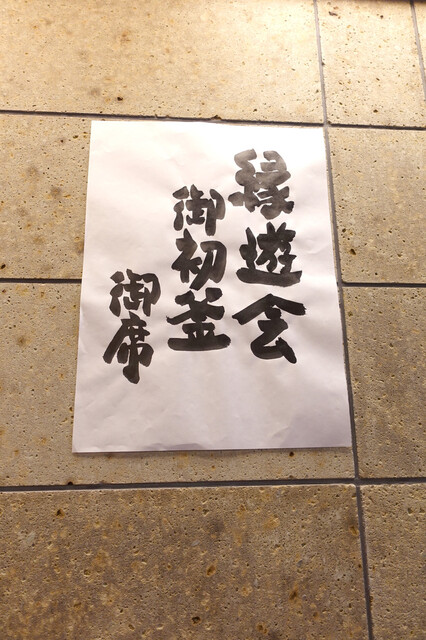 縁遊会
御初釜
御席